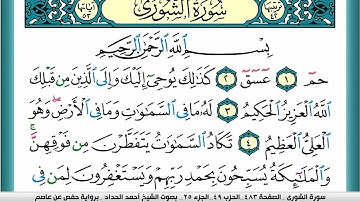 سُورَةُ الشُّورَىٰ
بِسْمِ اللَّهِ الرَّحْمَٰنِ الرَّحِيمِ
حمٓ ١ عٓسٓقٓ ٢ كَذَٰلِكَ يُوحِىٓ إِلَيْكَ وَإِلَى ٱلَّذِينَ مِن قَبْلِكَ
ٱللَّهُ ٱلْعَزِيزُ ٱلْحَكِيمُ ٣ لَهُۥ مَا فِى ٱلسَّمَٰوَٰتِ وَمَا فِى ٱلْأَرْضِ ۖ وَهُوَ
ٱلْعَلِىُّ ٱلْعَظِيمُ ٤ تَكَادُ ٱلسَّمَٰوَٰتُ يَتَفَطَّرْنَ مِن فَوْقِهِنَّ ۚ
وَٱلْمَلَٰٓئِكَةُ يُسَبِّحُونَ بِحَمْدِ رَبِّهِمْ وَيَسْتَغْفِرُونَ لِمَن فِى
سورة الشورى . الصفحة ٤٨٣ . الحزب ٤٩ . الجزء ٢٥ . بصوت الشيخ أحمد الحداد . برواية حفص عن عاصم